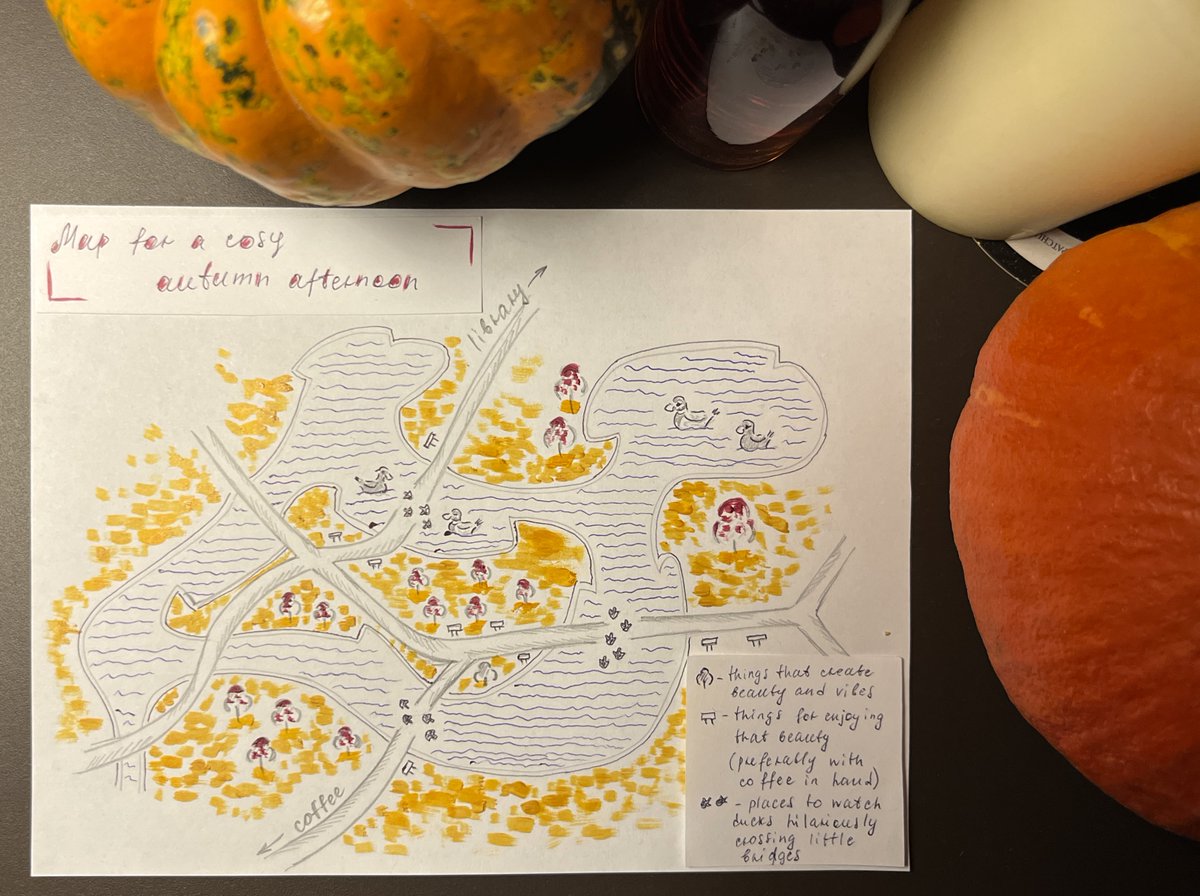 Map for a cosy
autumn afternoon
library
coffee
- things that create
beauty and vibes
- things for enjoying
that beauty
(preferably with
coffee in hand)
- places to watch
ducks hilariously
crossing little
bridges